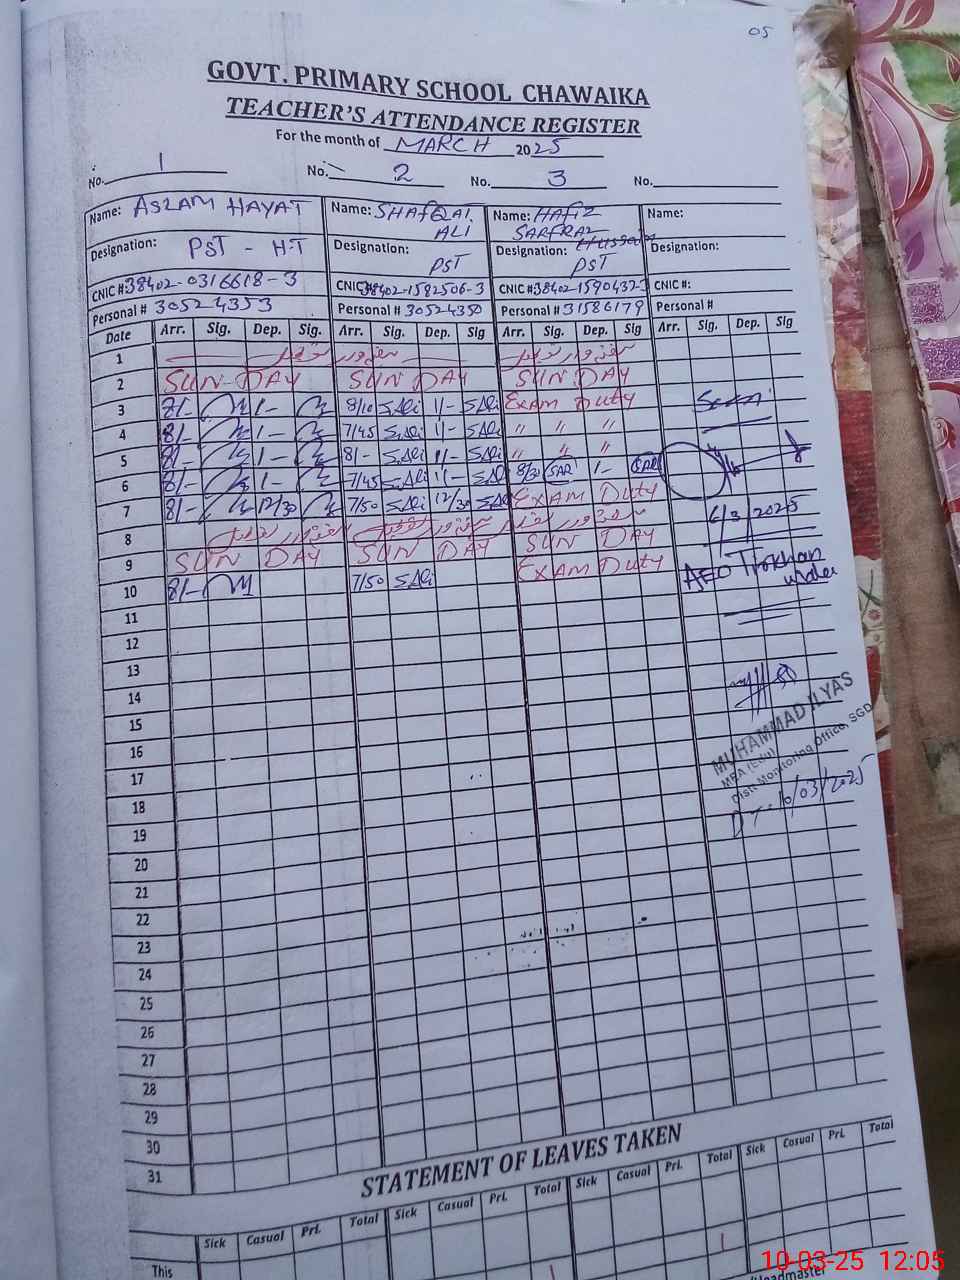 05
GOVT. PRIMARY SCHOOL CHAWAIKA
TEACHER'S ATTENDANCE REGISTER
For the month of MARCH 2025
No. 1 No. 2 No. 3 No.
Name: ASLAM HAYAT Name: SHAFQAT ALI Name: HAFIZ SARFRAZ Name:
Designation: PST - HT Designation: PST Designation: PST Designation:
CNIC # 38402-0316618-3 CNIC# 38402-1582506-3 CNIC #38402-1590437-3 CNIC #:
Personal # 30524353 Personal # 30524350 Personal # 31586179 Personal #
Date Arr. Sig. Dep. Sig. Arr. Sig. Dep. Sig Arr. Sig. Dep. Sig Arr. Sig. Dep. Sig
1
2 SUN-DAY SUN DAY SUN DAY
3 8/- 1- 8/10 S.Ali 1/- S.Ali Exam Duty
4 8/- 1- 7/45 S.Ali 1/- S.Ali " " "
5 8/- 1- 8/- S.Ali 1/- S.Ali " " "
6 8/- 1- 7/45 S.Ali 1/- S.Ali 8/30 SAR 1- SAR
7 8/- 12/30 7/50 S.Ali 12/30 S.Ali Exam Duty
6/3/2025
8
9 SUN DAY SUN DAY SUN DAY
10 8/- 7/50 S.Ali Exam Duty
AEO
11
12
13
14
15
16
17
18
19
20
21
22
23
24
25
26
27
28
29
30
31
MUHAMMAD ILYAS
MEA (Edu)
Distt Monitoring Office, SGD
DT: 10/03/2025
STATEMENT OF LEAVES TAKEN
Sick Casual Pri. Total Sick Casual Pri. Total Sick Casual Pri. Total Sick Casual Pri. Total
This
1 1
/Headmaster
10-03-25 12:05